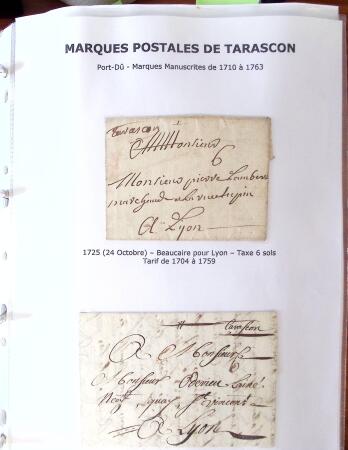 MARQUES POSTALES DE TARASCON
Port-Dû - Marques Manuscrites de 1710 à 1763
Tarascon
Monsieur
6
Monsieur pierre
marchand
A Lyon
1725 (24 Octobre) – Beaucaire pour Lyon – Taxe 6 sols
Tarif de 1704 à 1759
tarascon
A Monsieur
Monsieur
quay St vincent
A Lyon